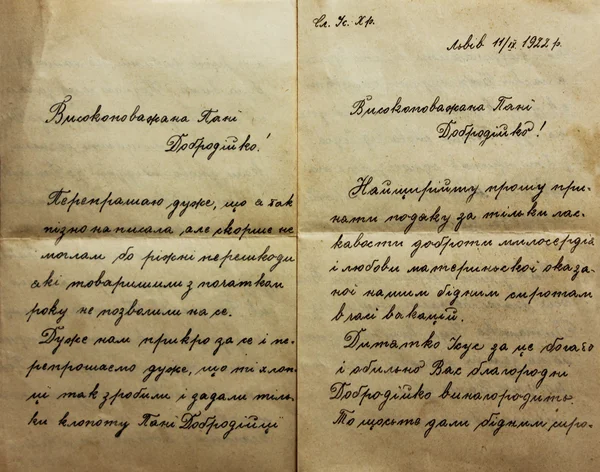 Високоповажана Пані
Добродійко!
Перепрашаю дуже, що а так
пізно написала, але скорше не
моглам бо ріжні перешкоди
які товаришили з початком
року не позволили на се.
Дуже нам прикро за се і пе-
репрошаємо дуже, що ті хлоп-
ці так зробили і задали тіль-
ки клопоту Пані Добродійці
Сл. Іс. Хр.
Львів 11/IX 1922 р.
Високоповажана Пані
Добродійко!
Найщирійшу прошу при-
няти подяку за тільки лас-
кавости доброти милосердія
і любови материньскої оказа-
ної нашим бідним сиротам
в часі вакацій.
Дитятко Ісус за це богато
і обильно Вас благородні
Добродійко винагородить.
То щосьте дали бідним сиро-